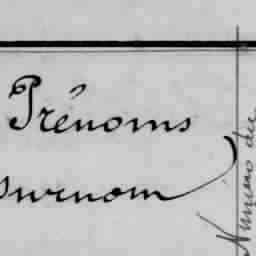 Prénoms
surnom)
Numéro du